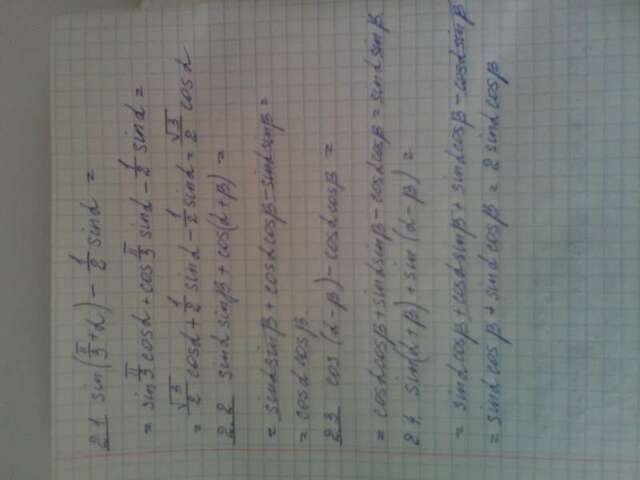 2.1 sin(π/3+α) - 1/2 sinα =
= sin π/3 cosα + cos π/3 sinα - 1/2 sinα =
= √3/2 cosα + 1/2 sinα - 1/2 sinα = √3/2 cosα
2.2 sinα sinβ + cos(α+β) =
= sinα sinβ + cosα cosβ - sinα sinβ =
= cosα cosβ.
2.3 cos(α-β) - cosα cosβ =
= cosα cosβ + sinα sinβ - cosα cosβ = sinα sinβ
2.4. sin(α+β) + sin(α-β) =
= sinα cosβ + cosα sinβ + sinα cosβ - cosα sinβ
= sinα cosβ + sinα cosβ = 2 sinα cosβ